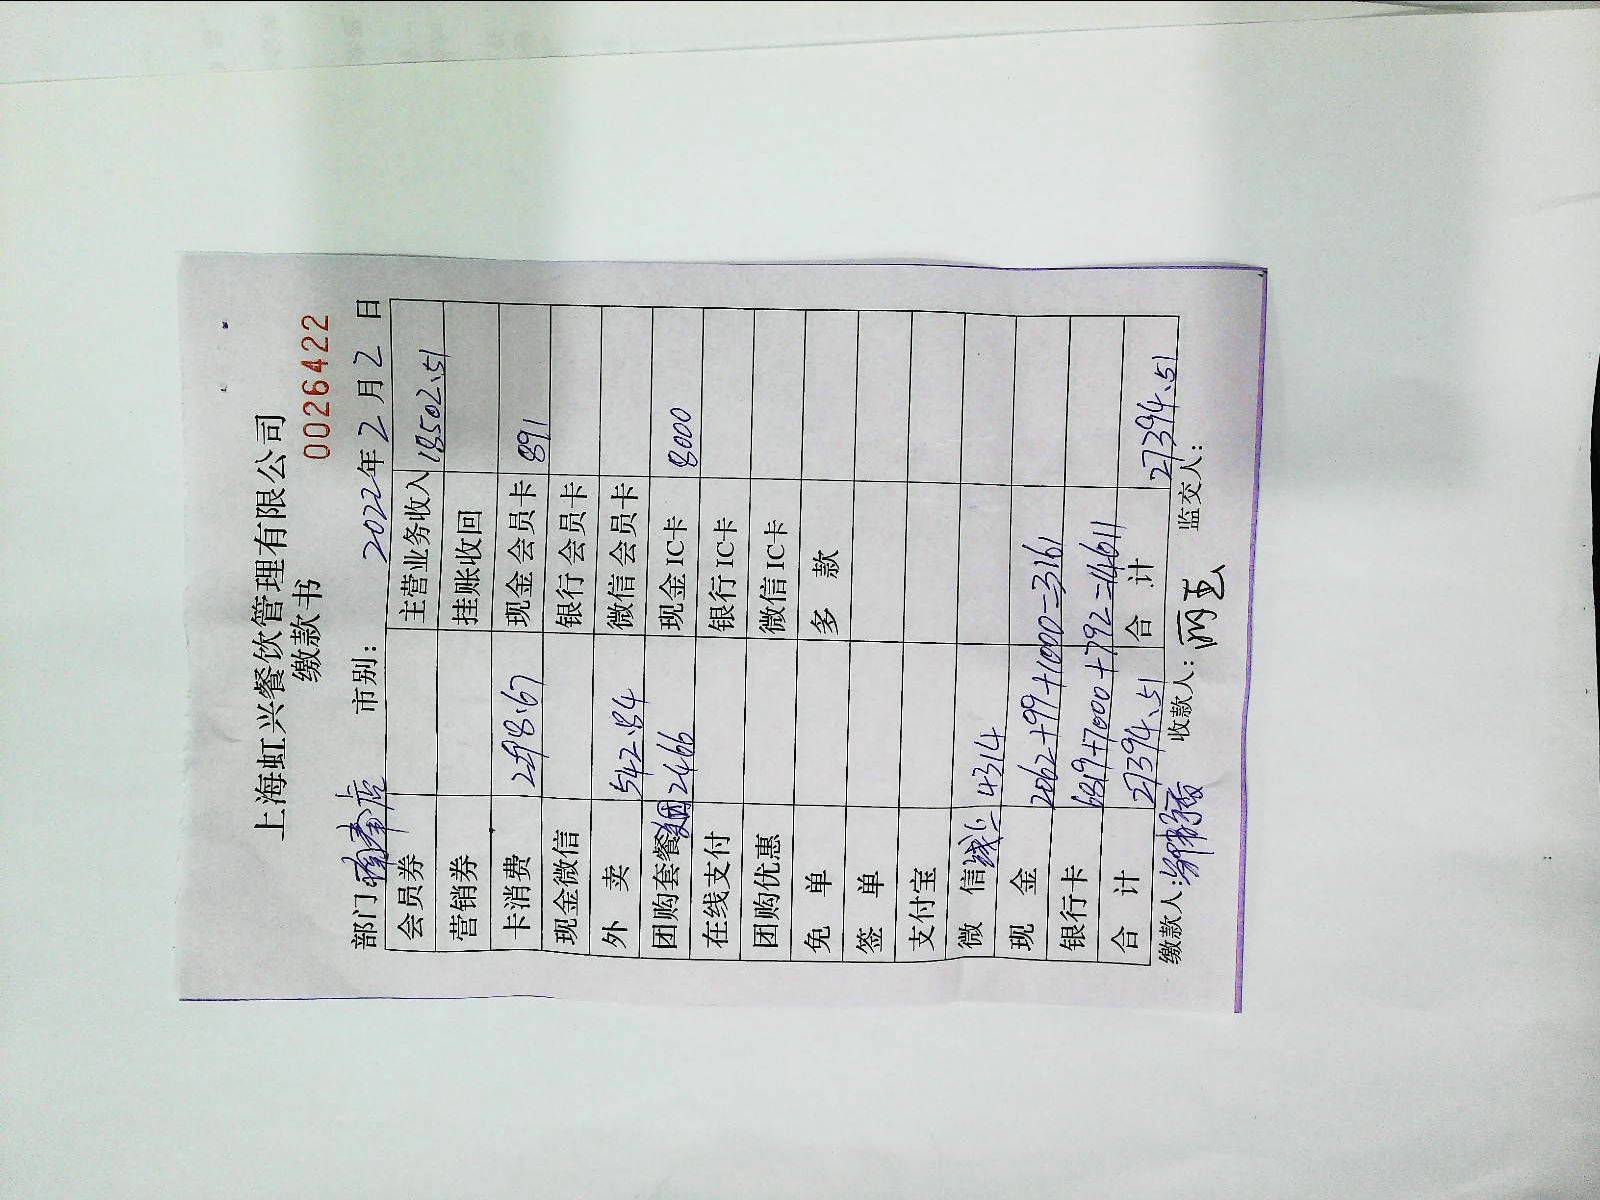 上海虹兴餐饮管理有限公司
缴款书
0026422
部门: 南奉店 市别: 2022年2月2日
会员券 主营业务收入 18502.51
营销券 挂账收回
卡消费 2298.67 现金会员卡 891
现金微信 银行会员卡
外 卖 542.84 微信会员卡
团购套餐 2466 现金IC卡 8000
在线支付 银行IC卡
团购优惠 微信IC卡
免 单 多 款
签 单
支付宝
微 信 线上 4314
现 金 2062+99+1000=3161
银行卡 6819+7000+792=14611
合 计 27394.51 合 计 27394.51
缴款人: 收款人: 监交人: